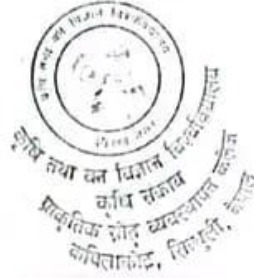 कृषि तथा वन विज्ञान विश्वविद्यालय
कृषि तथा वन विज्ञान विश्वविद्यालय
कृषि संकाय
प्राकृतिक स्रोत व्यवस्थापन कलेज
कपिलाकोट, सिन्धुली, नेपाल